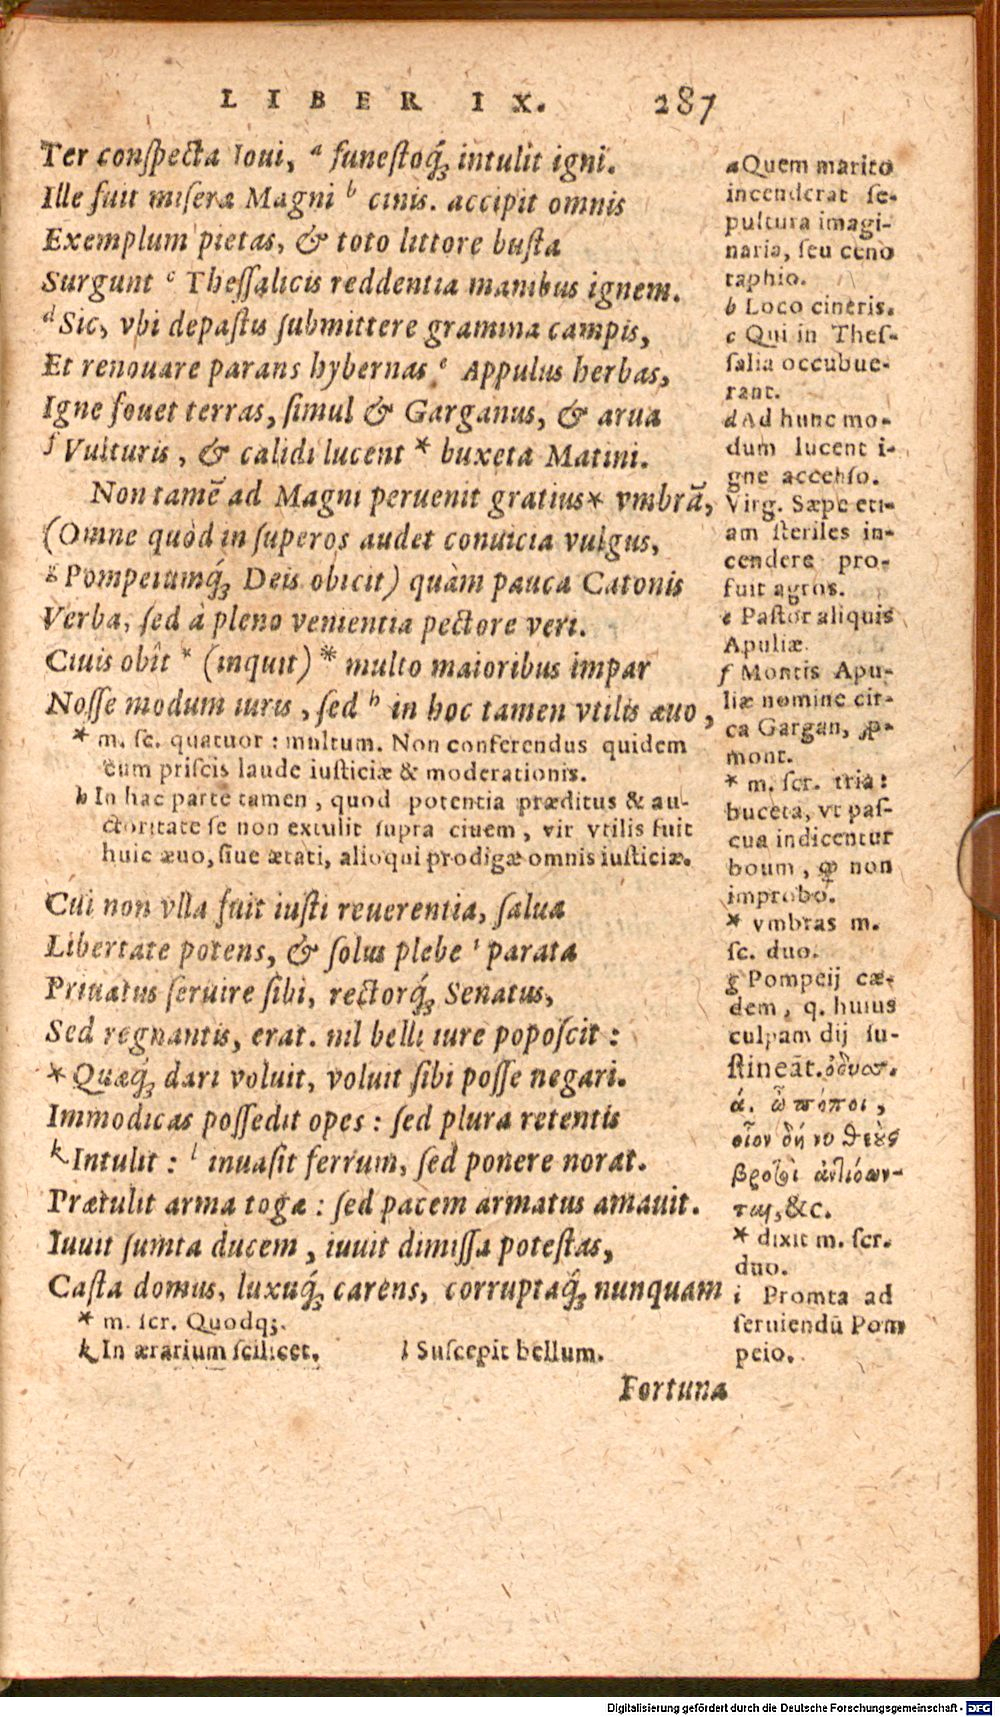 LIBER IX. 287
Ter conſpecta Ioui, a funeſtoq́; intulit igni.
Ille fuit miſeræ Magni b cinis. accipit omnis
Exemplum pietas, & toto littore buſta
Surgunt c Theſſalicis reddentia manibus ignem.
d Sic, vbi depaſtus ſubmittere gramina campis,
Et renouare parans hybernas e Appulus herbas,
Igne fouet terras, ſimul & Garganus, & arua
f Vulturis, & calidi lucent * buxeta Matini.
Non tamē ad Magni peruenit gratius * vmbrā,
(Omne quòd in ſuperos audet conuicia vulgus,
g Pompeiumq́; Deis obicit) quàm pauca Catonis
Verba, ſed à pleno venientia pectore veri.
Ciuis obît * (inquit) * multo maioribus impar
Noſſe modum iuris, ſed h in hoc tamen vtilis æuo,
* m. ſc. quatuor: multum. Non conferendus quidem
cum priſcis laude iuſticiæ & moderationis.
h In hac parte tamen, quod potentia præditus & au-
ctoritate ſe non extulit ſupra ciuem, vir vtilis fuit
huic æuo, ſiue ætati, alioqui prodigæ omnis iuſticiæ.
Cui non vlla fuit iuſti reuerentia, ſalua
Libertate potens, & ſolus plebe i parata
Priuatus ſeruire ſibi, rectorq́; Senatus,
Sed regnantis, erat. nil belli iure popoſcit:
* Quæq́; dari voluit, voluit ſibi poſſe negari.
Immodicas poſſedit opes: ſed plura retentis
k Intulit: l inuaſit ferrum, ſed ponere norat.
Prætulit arma togæ: ſed pacem armatus amauit.
Iuuit ſumta ducem, iuuit dimiſſa poteſtas,
Caſta domus, luxuq́; carens, corruptaq́; nunquam
* m. ſcr. Quodq;.
k In ærarium ſcilicet. l Suſcepit bellum.
Fortuna
a Quem marito
incenderat ſe-
pultura imagi-
naria, ſeu ceno
taphio.
b Loco cineris.
c Qui in Theſ-
ſalia occubue-
rant.
d Ad hunc mo-
dum lucent i-
gne accenſo.
Virg. Sæpe eti-
am ſteriles in-
cendere pro-
fuit agros.
e Paſtor aliquis
Apuliæ.
f Montis Apu-
liæ nomine cir-
ca Gargan,
mont.
* m. ſcr. tria:
buceta, vt paſ-
cua indicentur
boum, non
improbo.
* vmbras m.
ſc. duo.
g Pompeij cæ-
dem, q. huius
culpam dij ſu-
ſtineāt. ὀδυσσ.
ά. ὢ πόποι,
οἷον δή νυ θεοὺς
βροτοὶ αἰτιόων-
ται, &c.
* dixit m. ſcr.
duo.
i Promta ad
ſeruiendū Pom
peio.
Digitalisierung gefördert durch die Deutsche Forschungsgemeinschaft - DFG